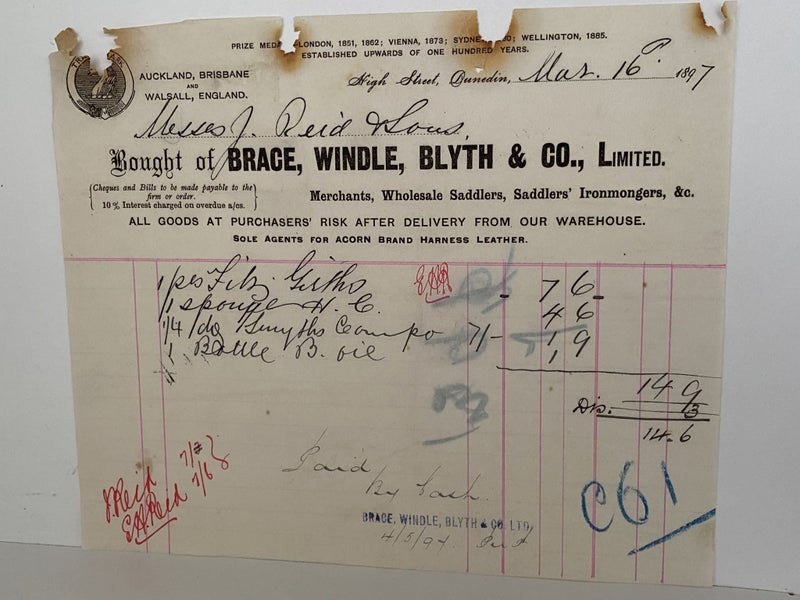 PRIZE MEDA LONDON, 1851, 1862; VIENNA, 1873; SYDNE 80; WELLINGTON, 1885.
ESTABLISHED UPWARDS OF ONE HUNDRED YEARS.
AUCKLAND, BRISBANE
AND
WALSALL, ENGLAND.
High Street, Dunedin, Mar. 16 1897
Messrs J. Reid & Sons,
Bought of BRACE, WINDLE, BLYTH & CO., LIMITED.
Cheques and Bills to be made payable to the
firm or order.
10 % Interest charged on overdue a/cs.
Merchants, Wholesale Saddlers, Saddlers' Ironmongers, &c.
ALL GOODS AT PURCHASERS' RISK AFTER DELIVERY FROM OUR WAREHOUSE.
SOLE AGENTS FOR ACORN BRAND HARNESS LEATHER.
1 pes Fitz Girths EAR - 7 6 -
1 sponge H. C. 4 6
1/4 do Smyths Compo 7/- 1 9
1 Bottle B. oil 1 9
14 9
Dis. 3
14.6
J Reid 7/3
EAReid 7/6
Paid
By Cash.
BRACE, WINDLE, BLYTH & CO. LTD.
4/5/97.
C61